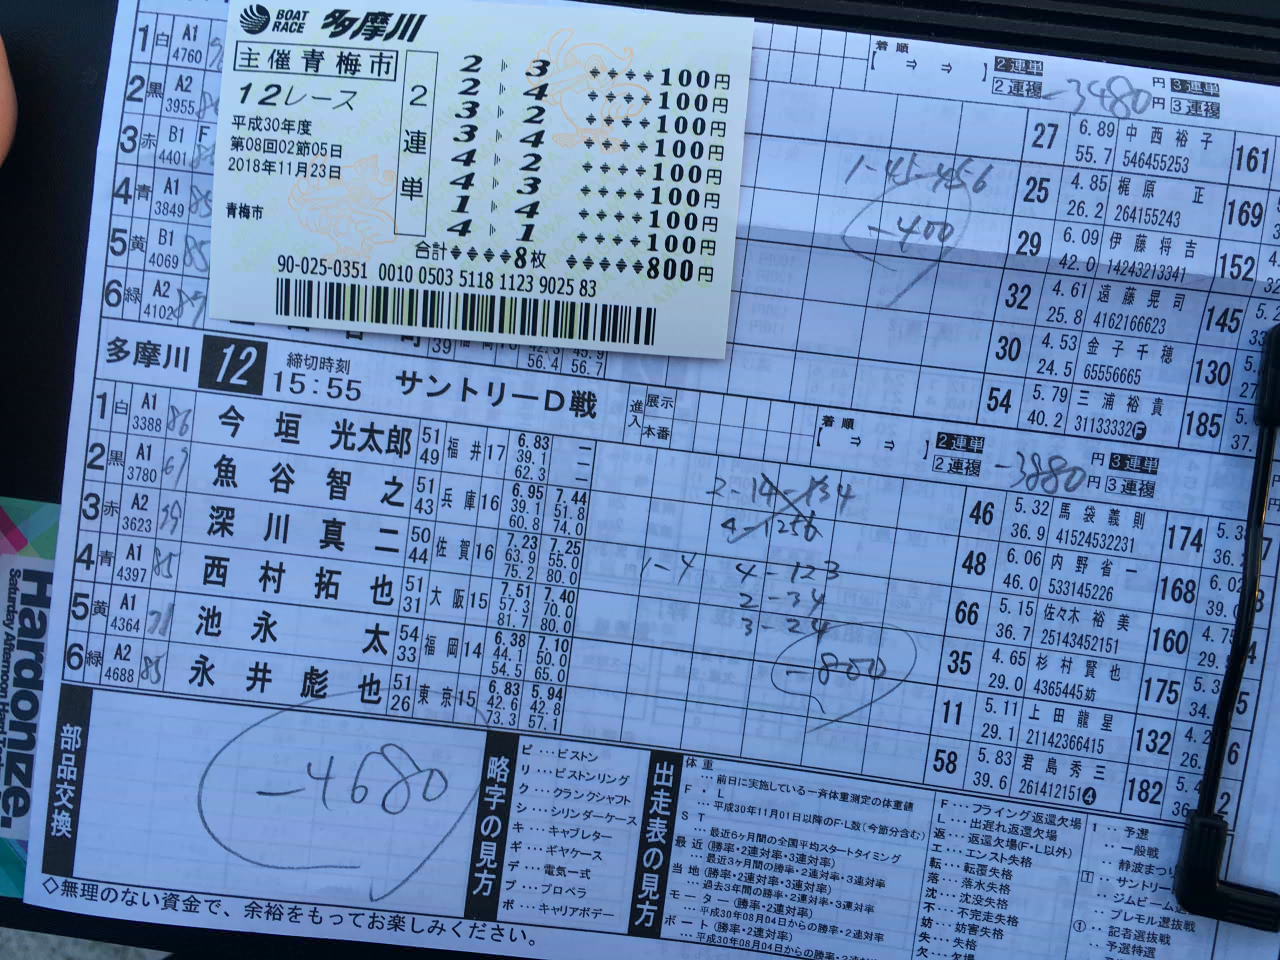 BOAT RACE 多摩川
主催青梅市
12レース
平成30年度
第08回02節05日
2018年11月23日
青梅市
2連単
2 3 100円
2 4 100円
3 2 100円
3 4 100円
4 2 100円
4 3 100円
1 4 100円
4 1 100円
合計 8枚 800円
90-025-0351 0010 0503 5118 1123 9025 83
1 白 A1 4760
2 黒 A2 3955
3 赤 B1 F 4401
4 青 A1 3849 85
5 黄 B1 4069 85
6 緑 A2 4102
着順 [ ⇒ ⇒ ] 2連単 円 3連単
2連複 円 3連複
-3480
1-45-456
-400
27 6.89 55.7 中西裕子 546455253 161
25 4.85 26.2 梶原正 264155243 169
29 6.09 42.0 伊藤将吉 14243213341 152
32 4.61 25.8 遠藤晃司 4162166623 145
30 4.53 24.5 金子千穂 65556665 130
54 5.79 40.2 三浦裕貴 31133332F 185
多摩川 12 締切時刻 15:55 サントリーD戦
進入 展示 本番
着順 [ ⇒ ⇒ ] 2連単 円 3連単
2連複 円 3連複
-3880
1 白 A1 3388 86 今垣光太郎 51 49 福井17 6.83 39.1 62.3 — — —
2 黒 A1 3780 67 魚谷智之 51 43 兵庫16 6.95 39.1 60.8 7.44 51.8 74.0
3 赤 A2 3623 深川真二 50 44 佐賀16 7.23 63.9 75.2 7.25 55.0 80.0
4 青 A1 4397 85 西村拓也 51 31 大阪15 7.51 57.3 81.7 7.40 70.0 80.0
5 黄 A1 4364 池永太 54 33 福岡14 6.38 44.1 54.5 7.10 50.0 65.0
6 緑 A2 4688 85 永井彪也 51 26 東京15 6.83 42.6 73.3 5.94 42.8 57.1
2-14-134
4-1256
1-4 4-123
2-34
3-24
-800
46 5.32 36.9 馬袋義則 41524532231 174
48 6.06 46.0 内野省一 533145226 168
66 5.15 36.7 佐々木裕美 25143452151 160
35 4.65 29.0 杉村賢也 4365445妨 175
11 5.11 29.1 上田龍星 21142366415 132
58 5.83 39.6 君島秀三 261412151❹ 182
部品交換
-4680
略字の見方
ピ…ピストン
リ…ピストンリング
ク…クランクシャフト
シ…シリンダーケース
キ…キャブレター
ギ…ギヤケース
デ…電気一式
プ…プロペラ
ボ…キャリアボデー
出走表の見方
体重
…前日に実施している一斉体重測定の体重値
F・L
…平成30年11月01日以降のF・L数(今節分含む)
ST
…最近6ヶ月間の全国平均スタートタイミング
最近(勝率・2連対率・3連対率)
…最近3ヶ月間の勝率・2連対率・3連対率
当地(勝率・2連対率・3連対率)
…過去3年間の勝率・2連対率・3連対率
モーター(勝率・2連対率)
…平成30年08月04日からの勝率・2連対率
ボート(勝率・2連対率)
…平成30年08月04日からの勝率・2連対率
F…フライング返還欠場
L…出遅れ返還欠場
返…返還欠場(F・L以外)
エ…エンスト失格
転…転覆失格
落…落水失格
沈…沈没失格
不…不完走失格
妨…妨害失格
失…失格
欠…欠場
1…予選
…一般戦
…静波まつり
…サントリー
…ジムビーム
…プレモル選抜戦
…記者選抜戦
…予選特選
◇無理のない資金で、余裕をもってお楽しみください。
Hardonize.
Saturday Afternoon